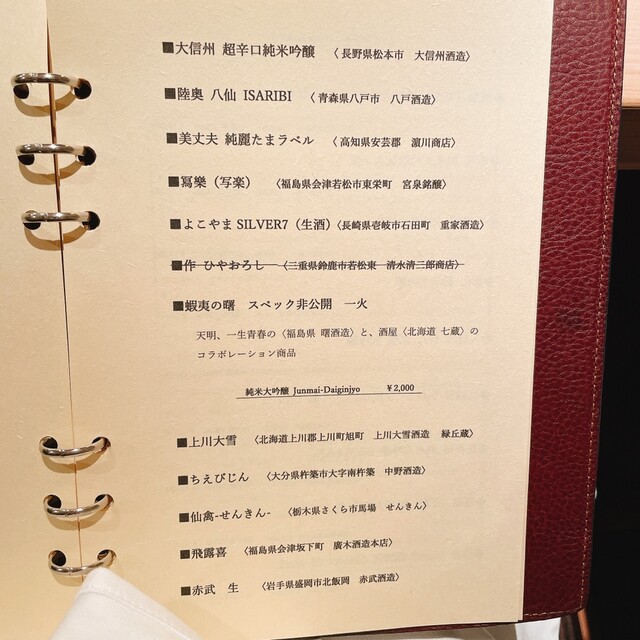 ■大信州 超辛口純米吟醸 〈長野県松本市 大信州酒造〉
■陸奥 八仙 ISARIBI 〈青森県八戸市 八戸酒造〉
■美丈夫 純麗たまラベル 〈高知県安芸郡 濵川商店〉
■冩樂（写楽） 〈福島県会津若松市東栄町 宮泉銘醸〉
■よこやま SILVER7（生酒）〈長崎県壱岐市石田町 重家酒造〉
■作 ひやおろし 〈三重県鈴鹿市若松東 清水清三郎商店〉
■蝦夷の曙 スペック非公開 一火
天明、一生青春の〈福島県 曙酒造〉と、酒屋〈北海道 七蔵〉の
コラボレーション商品
純米大吟醸 Junmai-Daiginjyo ￥2,000
■上川大雪 〈北海道上川郡上川町旭町 上川大雪酒造 緑丘蔵〉
■ちえびじん 〈大分県杵築市大字南杵築 中野酒造〉
■仙禽-せんきん- 〈栃木県さくら市馬場 せんきん〉
■飛露喜 〈福島県会津坂下町 廣木酒造本店〉
■赤武 生 〈岩手県盛岡市北飯岡 赤武酒造〉